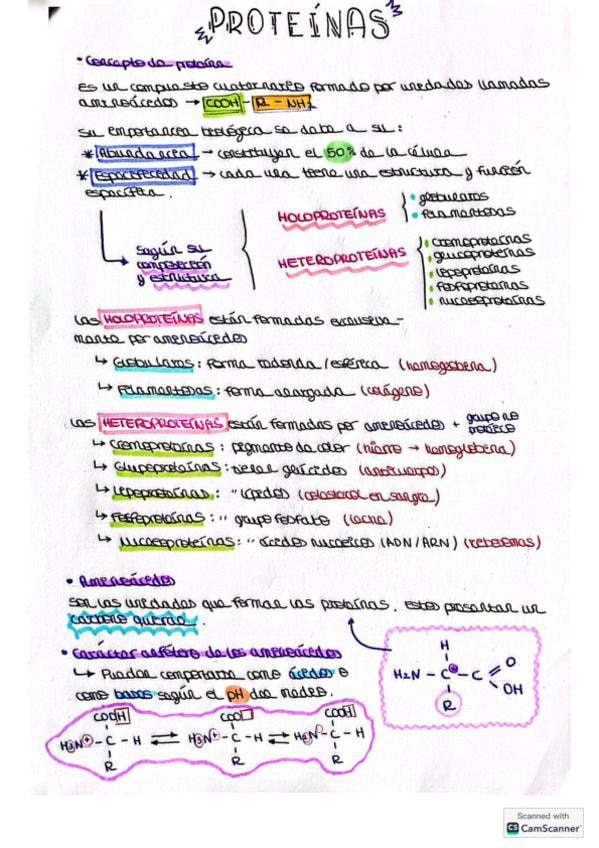 PROTEÍNAS
• Concepto de proteína
Es un compuesto cuaternario formado por unidades llamadas
aminoácidos → COOH - R - NH2
Su importancia biológica se debe a su:
* Abundancia → constituyen el 50% de la célula
* Especificidad → cada una tiene una estructura y función
específica.
Según su
composición
y estructura
HOLOPROTEÍNAS
• globulares
• filamentosas
HETEROPROTEÍNAS
• cromoproteínas
• glucoproteínas
• lipoproteínas
• fosfoproteínas
• nucleoproteínas
Las HOLOPROTEÍNAS están formadas exclusiva-
mente por aminoácidos
↳ Globulares: forma redonda / esférica (hemoglobina)
↳ Filamentosas: forma alargada (colágeno)
Las HETEROPROTEÍNAS están formadas por aminoácidos + grupo no proteico
↳ Cromoproteínas: pigmento da color (hierro → hemoglobina)
↳ Glucoproteínas: llevan glúcidos (anticuerpo)
↳ Lipoproteínas: " lípidos (colesterol en sangre)
↳ Fosfoproteínas: " grupo fosfato (leche)
↳ Nucleoproteínas: " ácidos nucleicos (ADN/ARN) (ribosomas)
• Aminoácidos
Son las unidades que forman las proteínas. Estos presentan un
carbono quiral.
• Carácter anfótero de los aminoácidos
↳ Pueden comportarse como ácidos o
como bases según el pH del medio.
H
H2N - C* - C
O
OH
R
COOH COO COOH
H3N+ - C - H ⇌ H3N+ - C - H ⇌ H2N - C - H
R R R
Scanned with
CS CamScanner